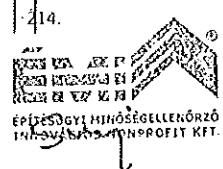 214.
ÉMI
®
ÉPÍTÉSÜGYI MINŐSÉGELLENŐRZŐ
INNOVÁCIÓS NONPROFIT KFT.